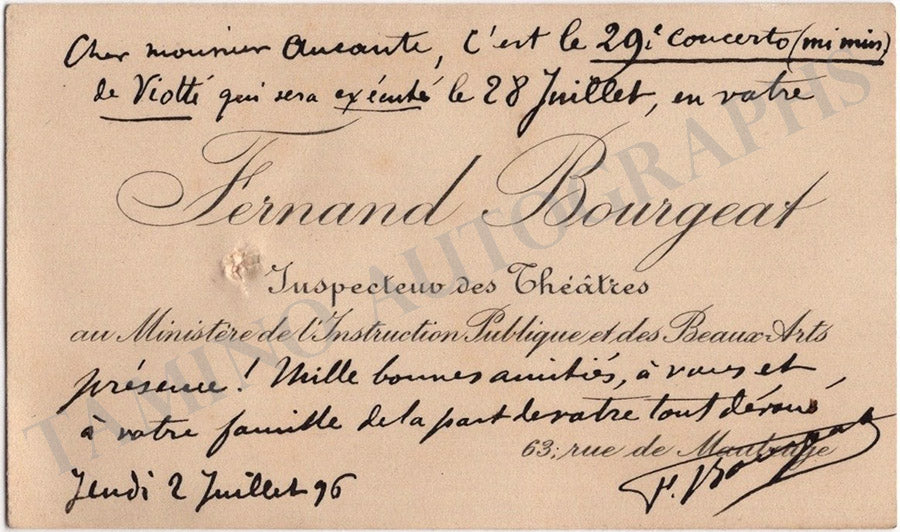 Cher monsieur Ancante, c'est le 29e concerto (mi min)
de Viotti qui sera exécuté le 28 Juillet, en votre
Fernand Bourgeat
Inspecteur des Théâtres
au Ministère de l'Instruction Publique et des Beaux-Arts
présence ! Mille bonnes amitiés, à vous et
à votre famille de la part de votre tout dévoué
63, rue de Maubeuge
F. Bourgeat
Jeudi 2 Juillet 96
TAMINO AUTOGRAPHS